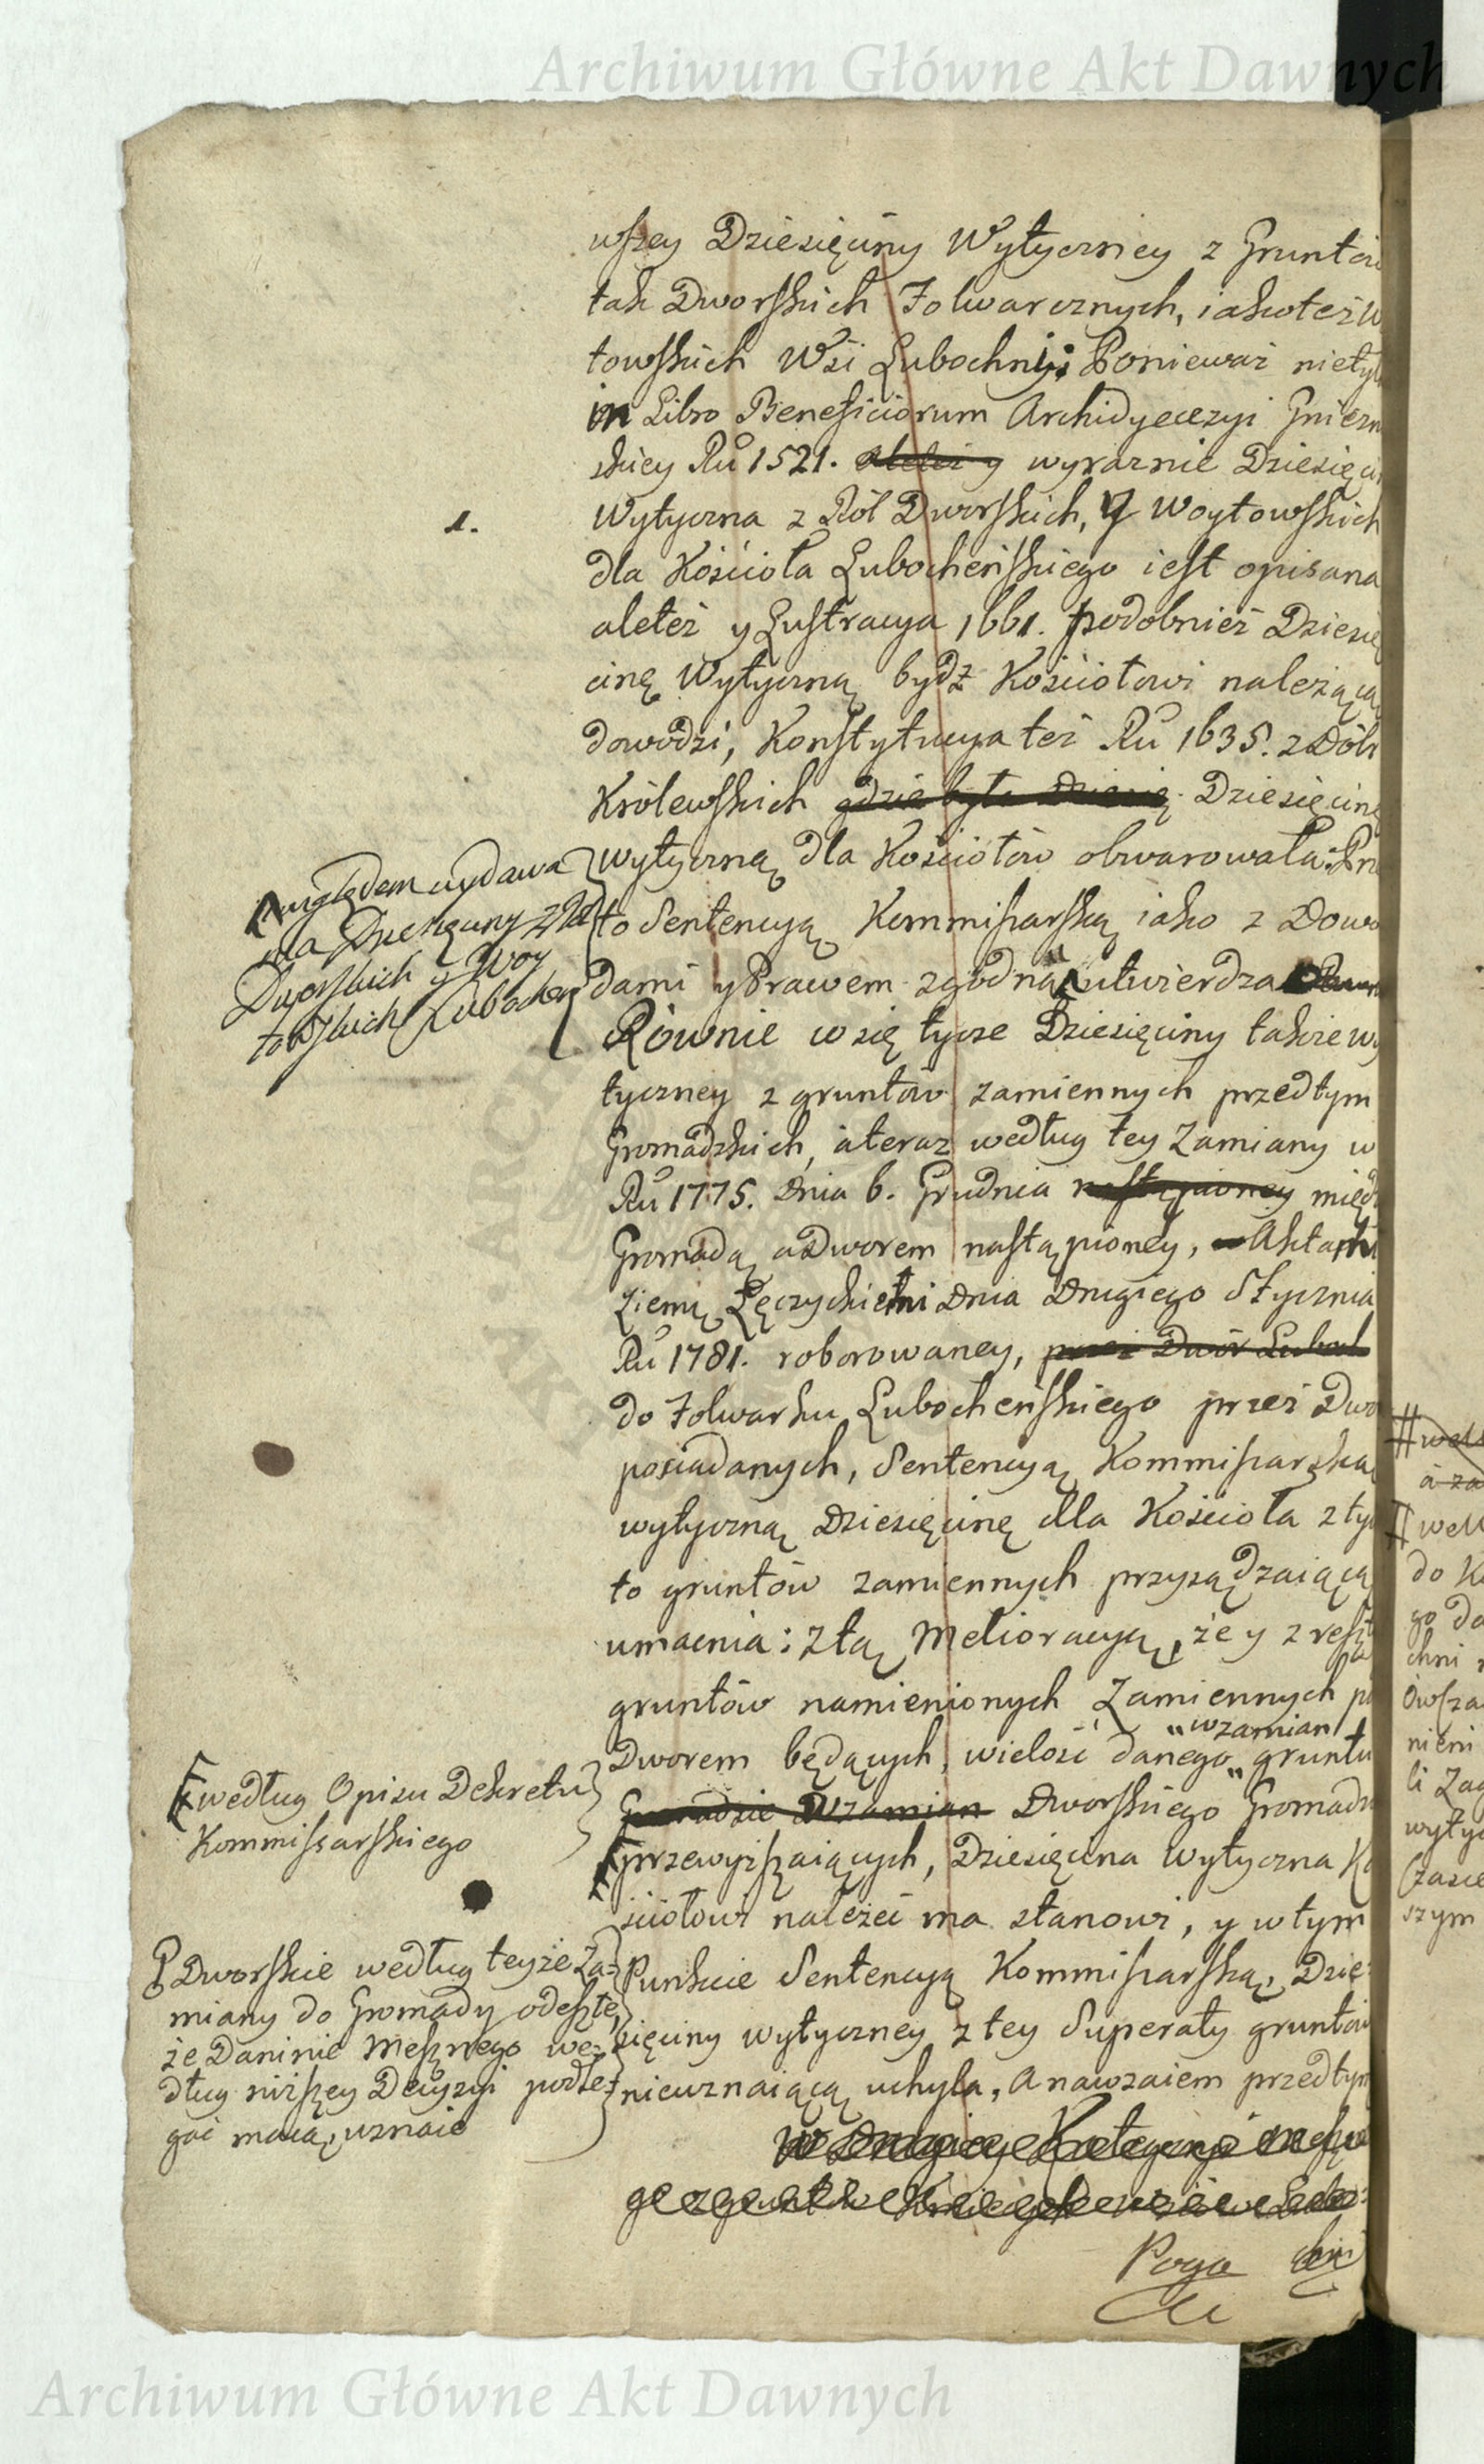 Archiwum Główne Akt Dawnych
wszey Dziesięciny Wytyczney z Gruntów
tak Dworskich Folwarcznych, iakoteż W
towskich Wsi Lubochni; Ponieważ nietyl
in Libro Beneficiorum Archidyecezyi Gniezn
skiey Ru 1521. wyraznie Dziesięcin
1.
Wytyczna z Ról Dworskich, y Woytowskich
dla Kościoła Lubocheńskiego iest opisana
aleteż y Lustracya 1661. podobnież Dziesię
cinę Wytyczną bydź Kościołowi należącą
dowodzi, Konstytucya też Ru 1635. z Dóbr
Królewskich gdzie była Dziesię Dziesięcinę
wytyczną dla Kościołów obwarowała: Prze
to Sentencyą Kommissarską iako z Dowo
dami y Prawem zgodną utwierdza
względem wydawa
nia Dziesięciny z Ról
Dworskich y Woy
towskich Lubochen
Równie w się tycze Dziesięciny także wy
tyczney z gruntów zamiennych przedtym
Gromadzkich, a teraz według tey Zamiany w
Ru 1775. Dnia 6. Grudnia nastąpioney międz
Gromadą a Dworem nastąpioney, Aktami
Ziemi Łęczyckiemi Dnia Drugiego Stycznia
Ru 1781. roborowaney, przez Dwór Luboch
do Folwarku Lubocheńskiego przez Dwór
posiadanych, Sentencyą Kommissarską
wytyczną Dziesięcinę dla Kościoła z tych
to gruntów zamiennych przysądzaiącą
umacnia: z tą Melioracyą, że y z reszt
gruntów namienionych Zamiennych p
„wzamian
Dworem będących, wielość danego „ gruntu
Gromadzie Wzamian Dworskiego Gromadz
przewyższaiących, Dziesięcina Wytyczna Ko
ściołowi należeć ma stanowi, y w tym
według Opisu Dekretu
Kommissarskiego
Punkcie Sentencyą Kommissarską, Dzie
sięciny wytyczney z tey Superaty gruntów
nieuznaiącą uchyla, A nawzaiem przedtym
Dworskie według teyże Za
miany do Gromady odeszłe,
że Daninie Mesznego we
dług niższey Decyzyi podle
gać maią, uznaie
Poga
# 
do K
go do
chni
Owsza
nieni
li Zag
wytyc
Czasie
szym
Archiwum Główne Akt Dawnych